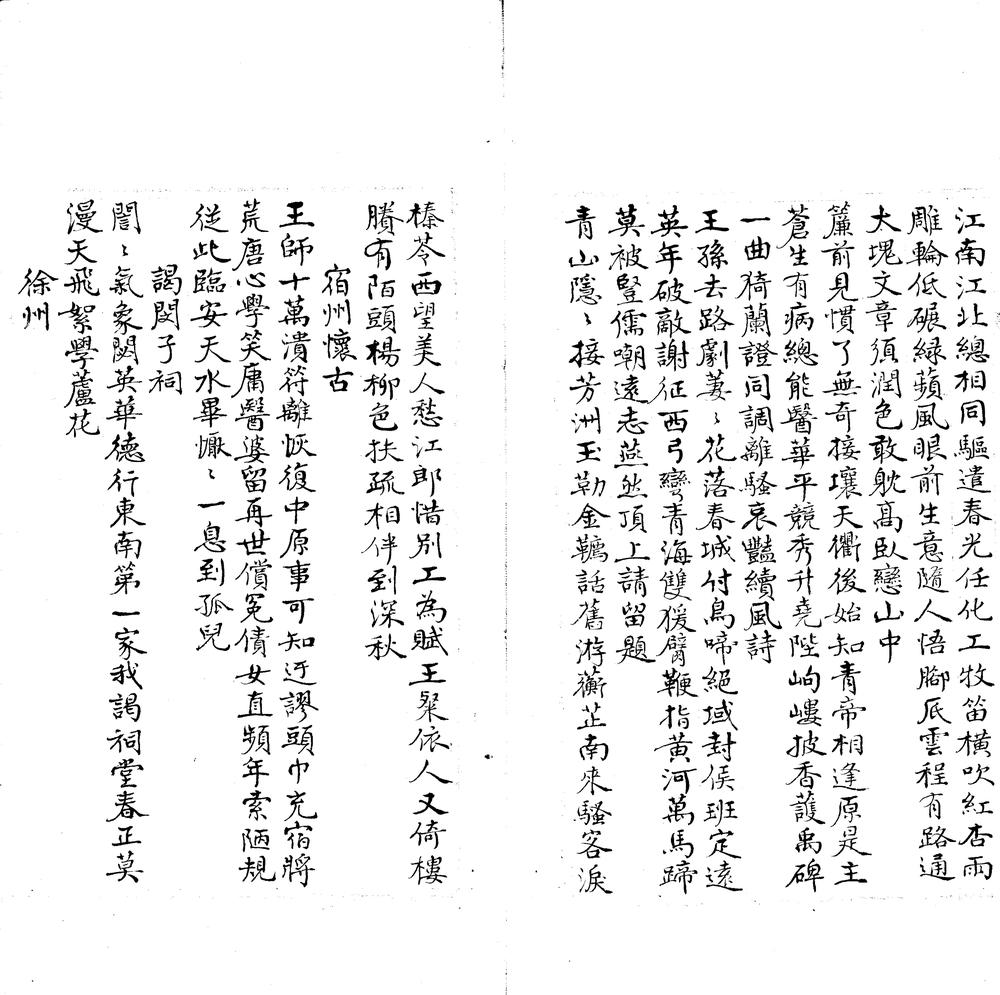 江南江北總相同驅遣春光任化工牧笛橫吹紅杏雨
雕輪低碾緑蘋風眼前生意隨人悟腳底雲程有路通
大塊文章須潤色敢躭高臥戀山中
簾前見慣了無奇接壤天衢後始知青帝相逢原是主
蒼生有病總能醫華平競秀升堯陛岣嶁披香護禹碑
一曲猗蘭證同調離騷哀豔續風詩
王孫去路劇萋〻花落春城付鳥啼絕域封侯班定遠
英年破敵謝征西弓彎青海雙猨臂鞭指黃河萬馬蹄
莫被豎儒嘲遠志燕然頂上請留題
青山隱〻接芳洲玉勒金鞿話舊游蘅芷南來騷客淚
榛苓西望美人愁江郎惜別工為賦王粲依人又倚樓
賸有陌頭楊柳色扶疏相伴到深秋
宿州懷古
王師十萬潰符離恢復中原事可知迂謬頭巾充宿將
荒唐心學笑庸醫婆留再世償冤債女直頻年索陋規
從此臨安天水畢懨〻一息到孤兒
謁閔子祠
誾〻氣象閟英華德行東南第一家我謁祠堂春正莫
漫天飛絮學蘆花
徐州